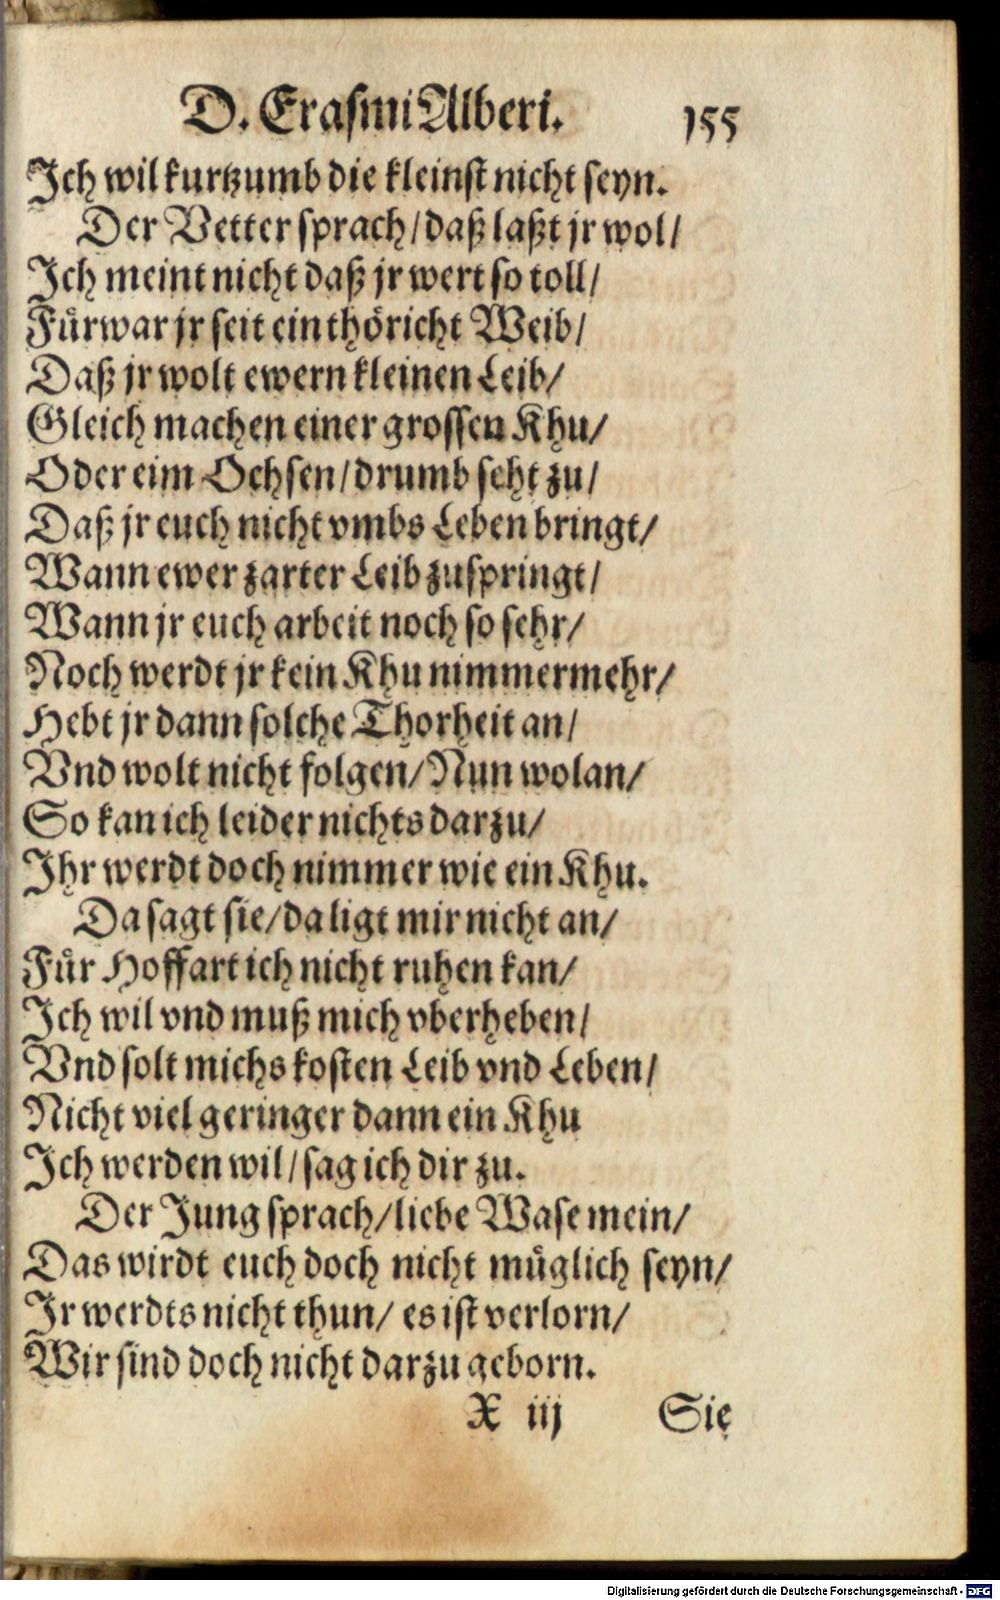 D. Erasmi Alberi. 155
Ich wil kurtzumb die kleinst nicht seyn.
Der Vetter sprach/ daß laßt jr wol/
Ich meint nicht daß jr wert so toll/
Fürwar jr seit ein thöricht Weib/
Daß jr wolt ewern kleinen Leib/
Gleich machen einer grossen Khu/
Oder eim Ochsen/ drumb seht zu/
Daß jr euch nicht vmbs Leben bringt/
Wann ewer zarter Leib zuspringt/
Wann jr euch arbeit noch so sehr/
Noch werdt jr kein Khu nimmermehr/
Hebt jr dann solche Thorheit an/
Vnd wolt nicht folgen/ Nun wolan/
So kan ich leider nichts darzu/
Ihr werdt doch nimmer wie ein Khu.
Da sagt sie/ da ligt mir nicht an/
Für Hoffart ich nicht ruhen kan/
Ich wil vnd muß mich vberheben/
Vnd solt michs kosten Leib vnd Leben/
Nicht viel geringer dann ein Khu
Ich werden wil/ sag ich dir zu.
Der Jung sprach/ liebe Wase mein/
Das wirdt euch doch nicht müglich seyn/
Ir werdts nicht thun/ es ist verlorn/
Wir sind doch nicht darzu geborn.
X iij Sie
Digitalisierung gefördert durch die Deutsche Forschungsgemeinschaft - DFG